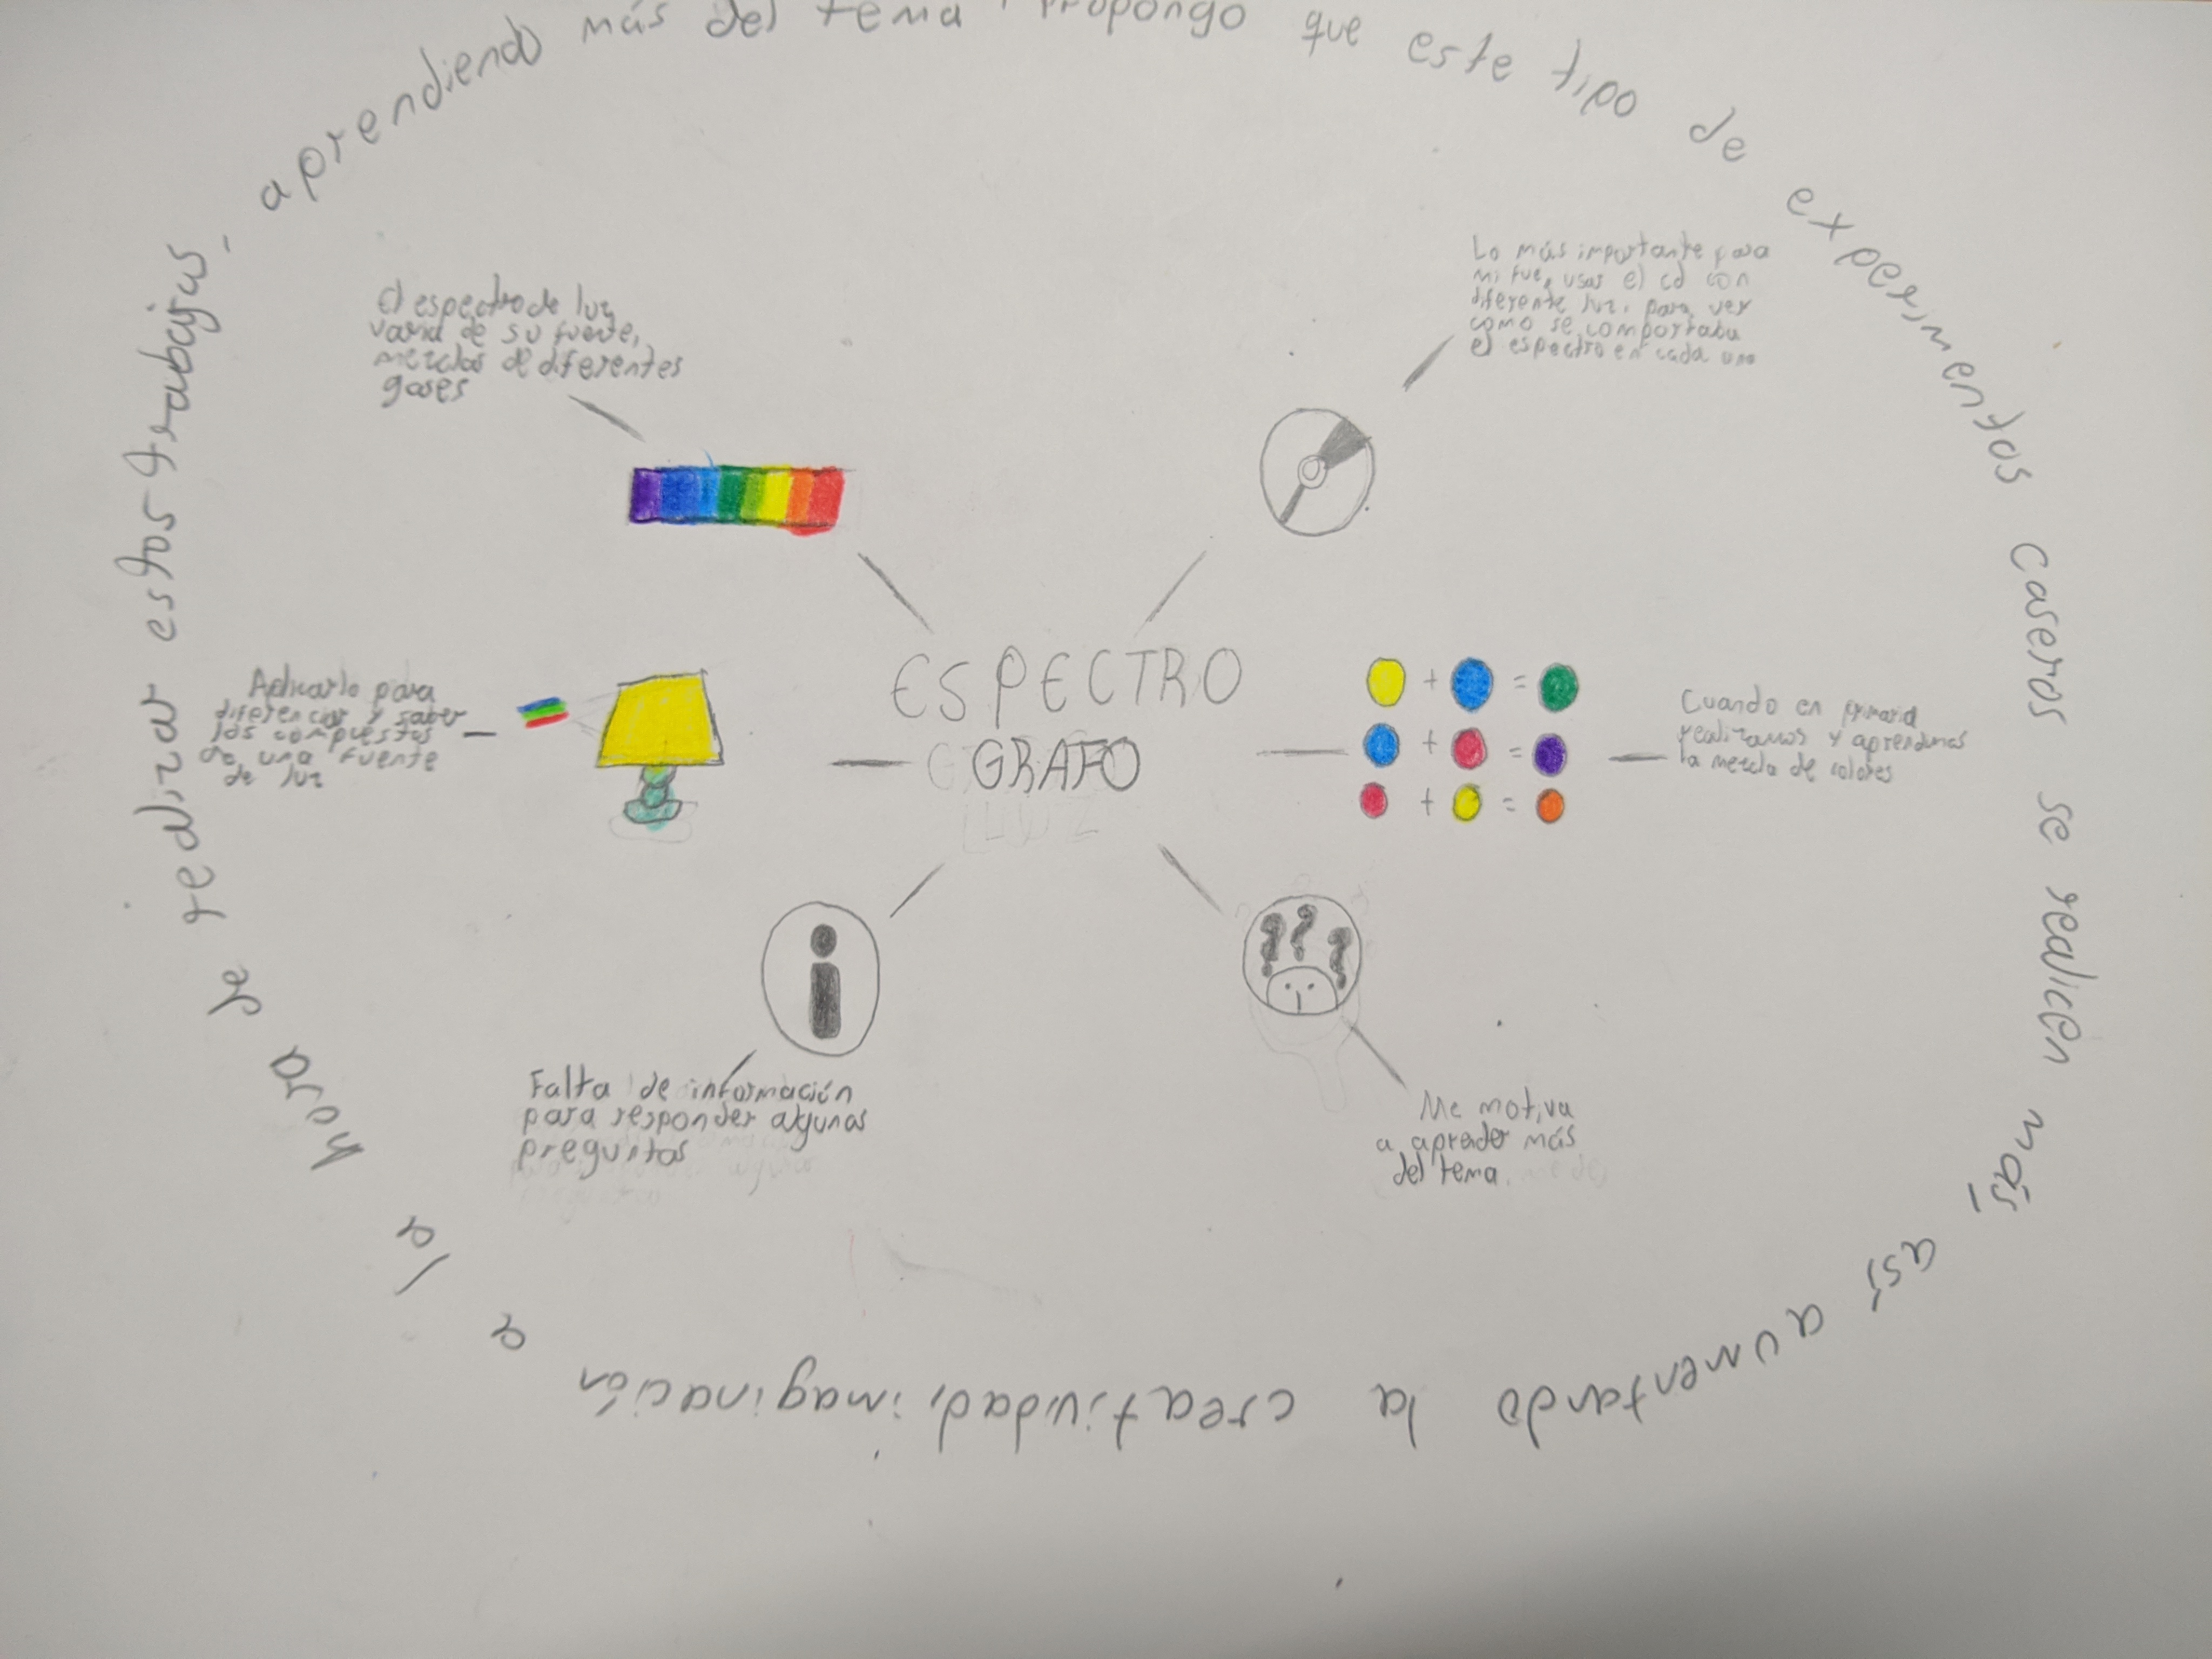 Propongo que este tipo de experimentos caseros se realicen más, así aumentando la creatividad, imaginación a la hora de realizar estos trabajos, aprendiendo más del tema
El espectro de luz
varia de su fuente,
mezclas de diferentes
gases
Lo más importante para
mi fue, usar el cd con
diferente luz, para ver
como se comportaba
el espectro en cada una
ESPECTRO
GRAFO
Aplicarlo para
diferenciar y saber
los compuestos
de una fuente
de luz
+ =
+ =
+ =
Cuando en primaria
realizamos y aprendimos
la mezcla de colores
i
Falta de información
para responder algunas
preguntas
? ? ?
Me motiva
a aprender más
del tema.